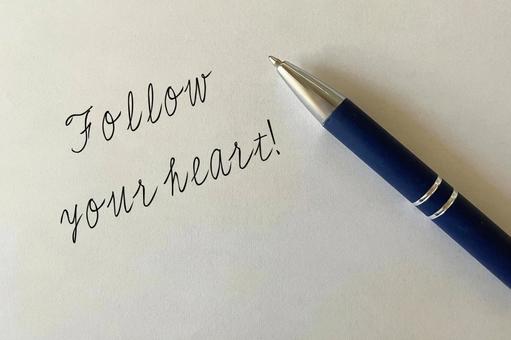 Follow
your heart!